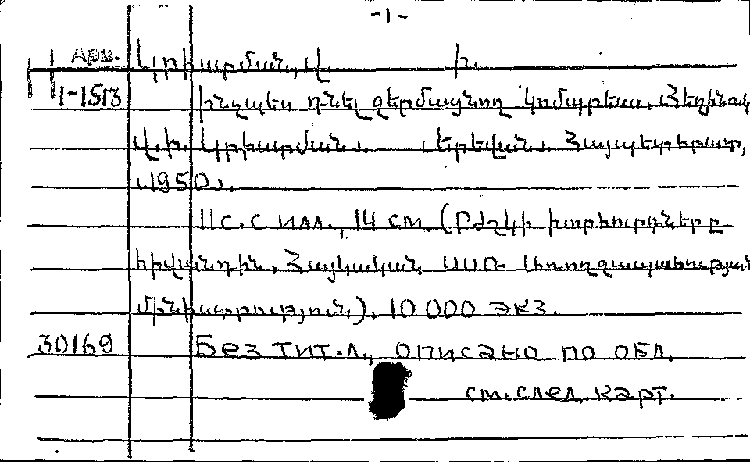 -1-
Арм. Կրիարման, Վ. Ի.
1-1513 Ինչպես դնել ջերմացնող կոմպրես. Հեղինակ
Վ. Ի. Կրիարման. Երեվան. Հայպետհրատ,
1950.
11 с. с илл., 14 см. (Բժշկի խորհուրդները
հիվանդին. Հայկական ՍՍՌ Առողջապահության
մինիստրություն). 10 000 экз.
30169 Без тит. л., описано по обл.
см. след. карт.